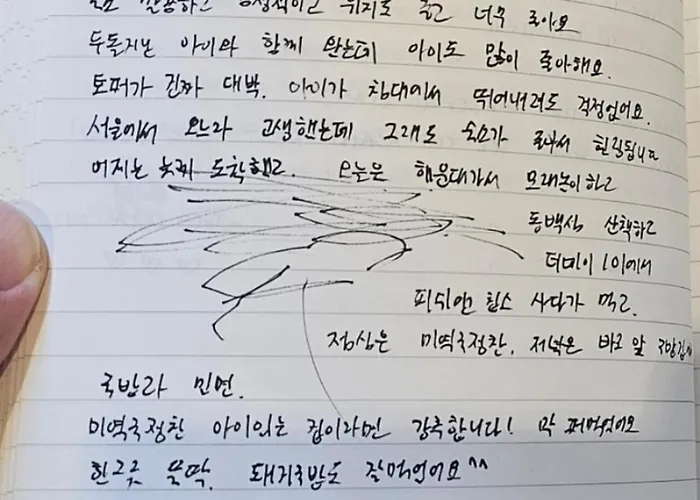 깔끔하고 감성적이고 위치도 좋고 너무 좋아요
두돌지난 아이와 함께 왔는데 아이도 많이 좋아해요.
토퍼가 진짜 대박. 아이가 침대에서 뛰어내려도 걱정없어요.
서울에서 오느라 고생했는데 그래도 숙소가 좋아서 힐링됩니다
어제는 늦게 도착했고. 오늘은 해운대가서 모래놀이하고
동백섬 산책하고
더베이101에서
피쉬앤 칩스 사다가 먹고.
점심은 미역국정찬. 저녁은 바로 앞
국밥라 밀면.
미역국정찬 아이있는 집이라면 강추합니다! 막 퍼먹었어요
한그릇 뚝딱. 돼지국밥도 잘먹었어요^^